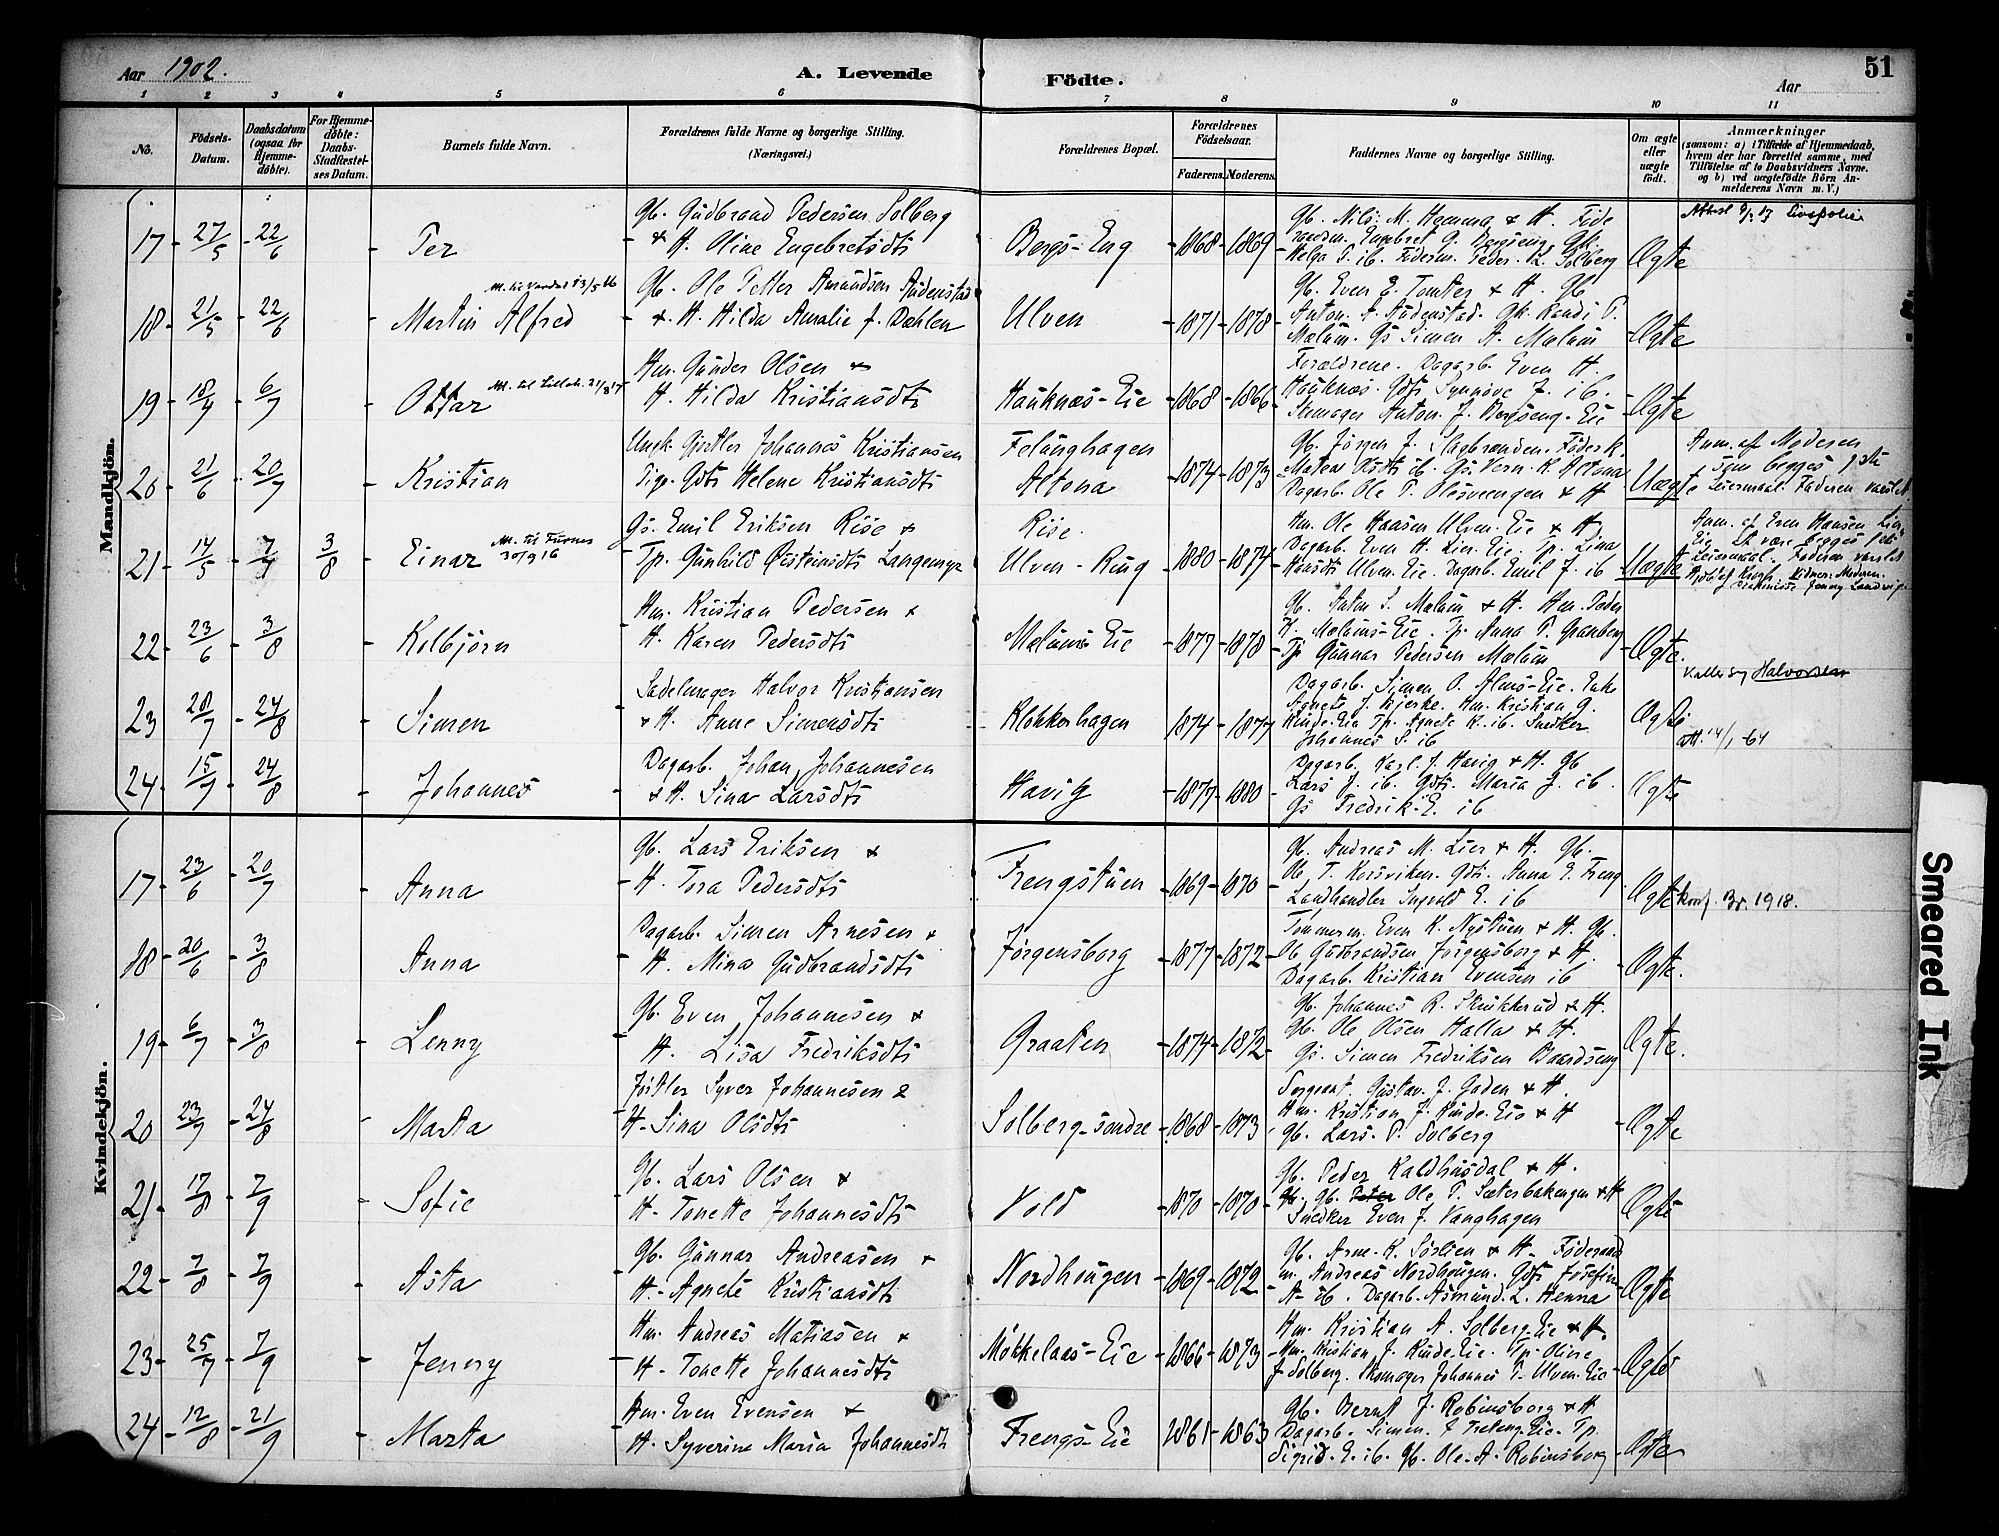 Aar 1902.
A. Levende Födte.
Aar
51
1 2 3 4 5 6 7 8 9 10 11
No.
Födsels-Datum.
Daabsdatum (ogsaa for Hjemme-döbte).
For Hjemme-döbte: Daabs-Stadfæstel-ses Datum.
Barnets fulde Navn.
Forældrenes fulde Navne og borgerlige Stilling.
(Næringsvei.)
Forældrenes Bopæl.
Forældrenes Födselsaar.
Faderens. Moderens.
Faddernes Navne og borgerlige Stilling.
Om ægte eller uægte født.
Anmærkninger
(saasom: a) i Tilfælde af Hjemmedaab, hvem der har forrettet samme, med Tilföielse af to Daabsvidners Navne. og b) ved uægtefödte Börn An-melderens Navn m. V.)
Mandkjön.
17 - 27/5 - 22/6 - Per
Gb. Gudbrand Pedersen Solberg
& H. Oline Engebretsdts
Bergs-Eng - 1868 - 1869
Gb. Nils M. Hamma & H. Föde
Helga P. ib. Föderm. Peder L. Solberg
Ægte
18 - 21/5 - 22/6 - Martin Alfred
Gb. Ole Petter Amundsen Audenstad
& H. Hilda Amalie f. Dæhlen
Ulven - 1871 - 1878
Gb. Even E. Tomter & H. Gb
Anton A. Audenstad. Gk. Randi P.
Mælum. Gs Simen A. Mælum
Ægte
19 - 18/4 - 6/7 - Ottar
Hm. Gunder Olsen &
H. Hilda Kristiansdts
Hauknæs-Eie - 1868 - 1866
Forældrene. Dagarb. Even H.
Hauknæs. Gdts Synnöve J. ib.
Skomager Anton J. Bergseng-Eie
Ægte
20 - 21/6 - 20/7 - Kristian
Ungk. Gjörtler Johannes Kristiansen
Pige Gdts Helene Kristiansdts
Felunghagen
Altona - 1874 - 1873
Gb. Jörgen J. Slagbrenden. Föderk.
Matea Olsdts ib. Gs. Vern. K. Altona
Dagarb. Ole P. Olsveengen & H
Uægte
Anm. af Moderen
som begges 1ste
Leiermaal. Faderen varslet
21 - 14/5 - 7/7 3/8 - Einar
Att. til Furnes
30/9 16
Gs. Emil Eriksen Rise &
Tp. Gunhild Østeinsdts Langemyr
Rise.
Ulven-Ring - 1880 - 1874
Hm. Ole Hansen Ulven-Eie & H.
Dagarb. Even H. Lier-Eie. Tp. Lina
Hansdts Ulven-Eie. Dagarb. Emil J. ib
Uægte
Anm. af Even Hansen Lier
Eie at være begges 1ste
Leiermaal. Faderen varslet
22 - 23/6 - 3/8 - Kolbjörn
Hm. Kristian Pedersen &
H. Karen Pedersdts
Mælums Eie - 1877 - 1878
Gb. Anton S. Mælum & H. Hm. Peder
K. Mælums-Eie. Tp. Anna P. Granberg
Tp Gunnar Pedersen Mælum
Ægte.
23 - 20/7 - 24/8 - Simen
Sadelmager Halvor Kristiansen
& H. Anne Simensdts
Klokkerhagen - 1874 - 1877
Dagarb. Simen O. Alms-Eie. Enke
Agnete J. Bjerke. Hm. Kristian G.
Kinde-Eie Tp. Agnete K. ib. Snedker
Johannes S. ib
Ægte
Kaller sig Halvorsen
att. 14/1-64
24 - 15/7 - 24/8 - Johannes
Dagarb. Johan Johannesen
& H. Sina Larsdts
Havig - 1877 - 1880
Dagarb. Karl J. Havig & H. Gb
Lars J. ib. Gdts. Maria J. ib.
Gs Fredrik E. ib
Ægte
Kvindekjön.
17 - 23/6 - 20/7 - Anna
Gb. Lars Eriksen &
H. Tora Pedersdts
Frengstuen - 1869 - 1870
Gb. Andreas M. Lier & H. Gb.
Ole T. Korsviken. Gdts. Anna E. Freng
Landhandler Ingvold E. ib
Ægte
Konf. Br. 1918.
18 - 20/6 - 3/8 - Anna
Dagarb. Simen Arnesen &
H. Mina Gudbrandsdts
Jörgensborg - 1877 - 1872
Tömmerm. Even K. Nystuen & H. Gb.
Ole Gudbrandsen Jörgensborg & H.
Dagarb. Kristian Evensen ib
Ægte.
19 - 6/7 - 3/8 - Lenny
Gb. Even Johannesen &
H. Lisa Fredriksdts
Graaten - 1874 - 1872
Gb. Johannes R. Skrukkerud & H.
Gb. Ole Olsen Halla & H.
Gs. Simen Fredriksen Baardseng
Ægte.
20 - 23/7 - 24/8 - Marta
Gjörtler Syver Johannesen &
H. Sina Olsdts
Solberg-söndre - 1868 - 1873
Sergeant Gustav J. Gaden & H.
Hm. Kristian J. Kinde-Eie & H
Gb. Lars P. Solberg
Ægte
21 - 17/8 - 7/9 - Sofie
Gb. Lars Olsen &
H. Tonette Johannesdts
Vold - 1870 - 1870
Gb. Peder Kaldhusdal & H.
Gb. Ole P. Sæterbakengen & H
Snedker Even J. Vanghagen
Ægte
22 - 7/8 - 7/9 - Asta
Gb. Gunnar Andreasen &
H. Agnete Kristiansdts
Nordhougen - 1869 - 1872
Gb. Arne K. Sörlien & H. Föderaad
m. Andreas Nordhougen. Gdts Josefine
A- ib. Dagarb. Asmund L. Henna
Ægte
23 - 25/7 - 7/9 - Jenny
Hm. Andreas Matiasen &
H. Tonette Johannesdts
Mökkelaas-Eie - 1866 - 1873
Hm. Kristian A. Solberg-Eie & H.
Hm. Kristian J. Kinde-Eie. Tp. Oline
J. Solberg. Skomager Johannes P. Ulven-Eie
Ægte
24 - 12/8 - 21/9 - Marta
Hm. Even Evensen &
H. Syverine Maria Johannesdts
Frengs-Eie 1861 - 1863
Gb. Bernt J. Robinsborg & H
Dagarb. Simen J. Freng-Eie. Tp.
Sigrid E. ib. Gb. Ole A. Robinsborg
Ægte
Smeared Ink